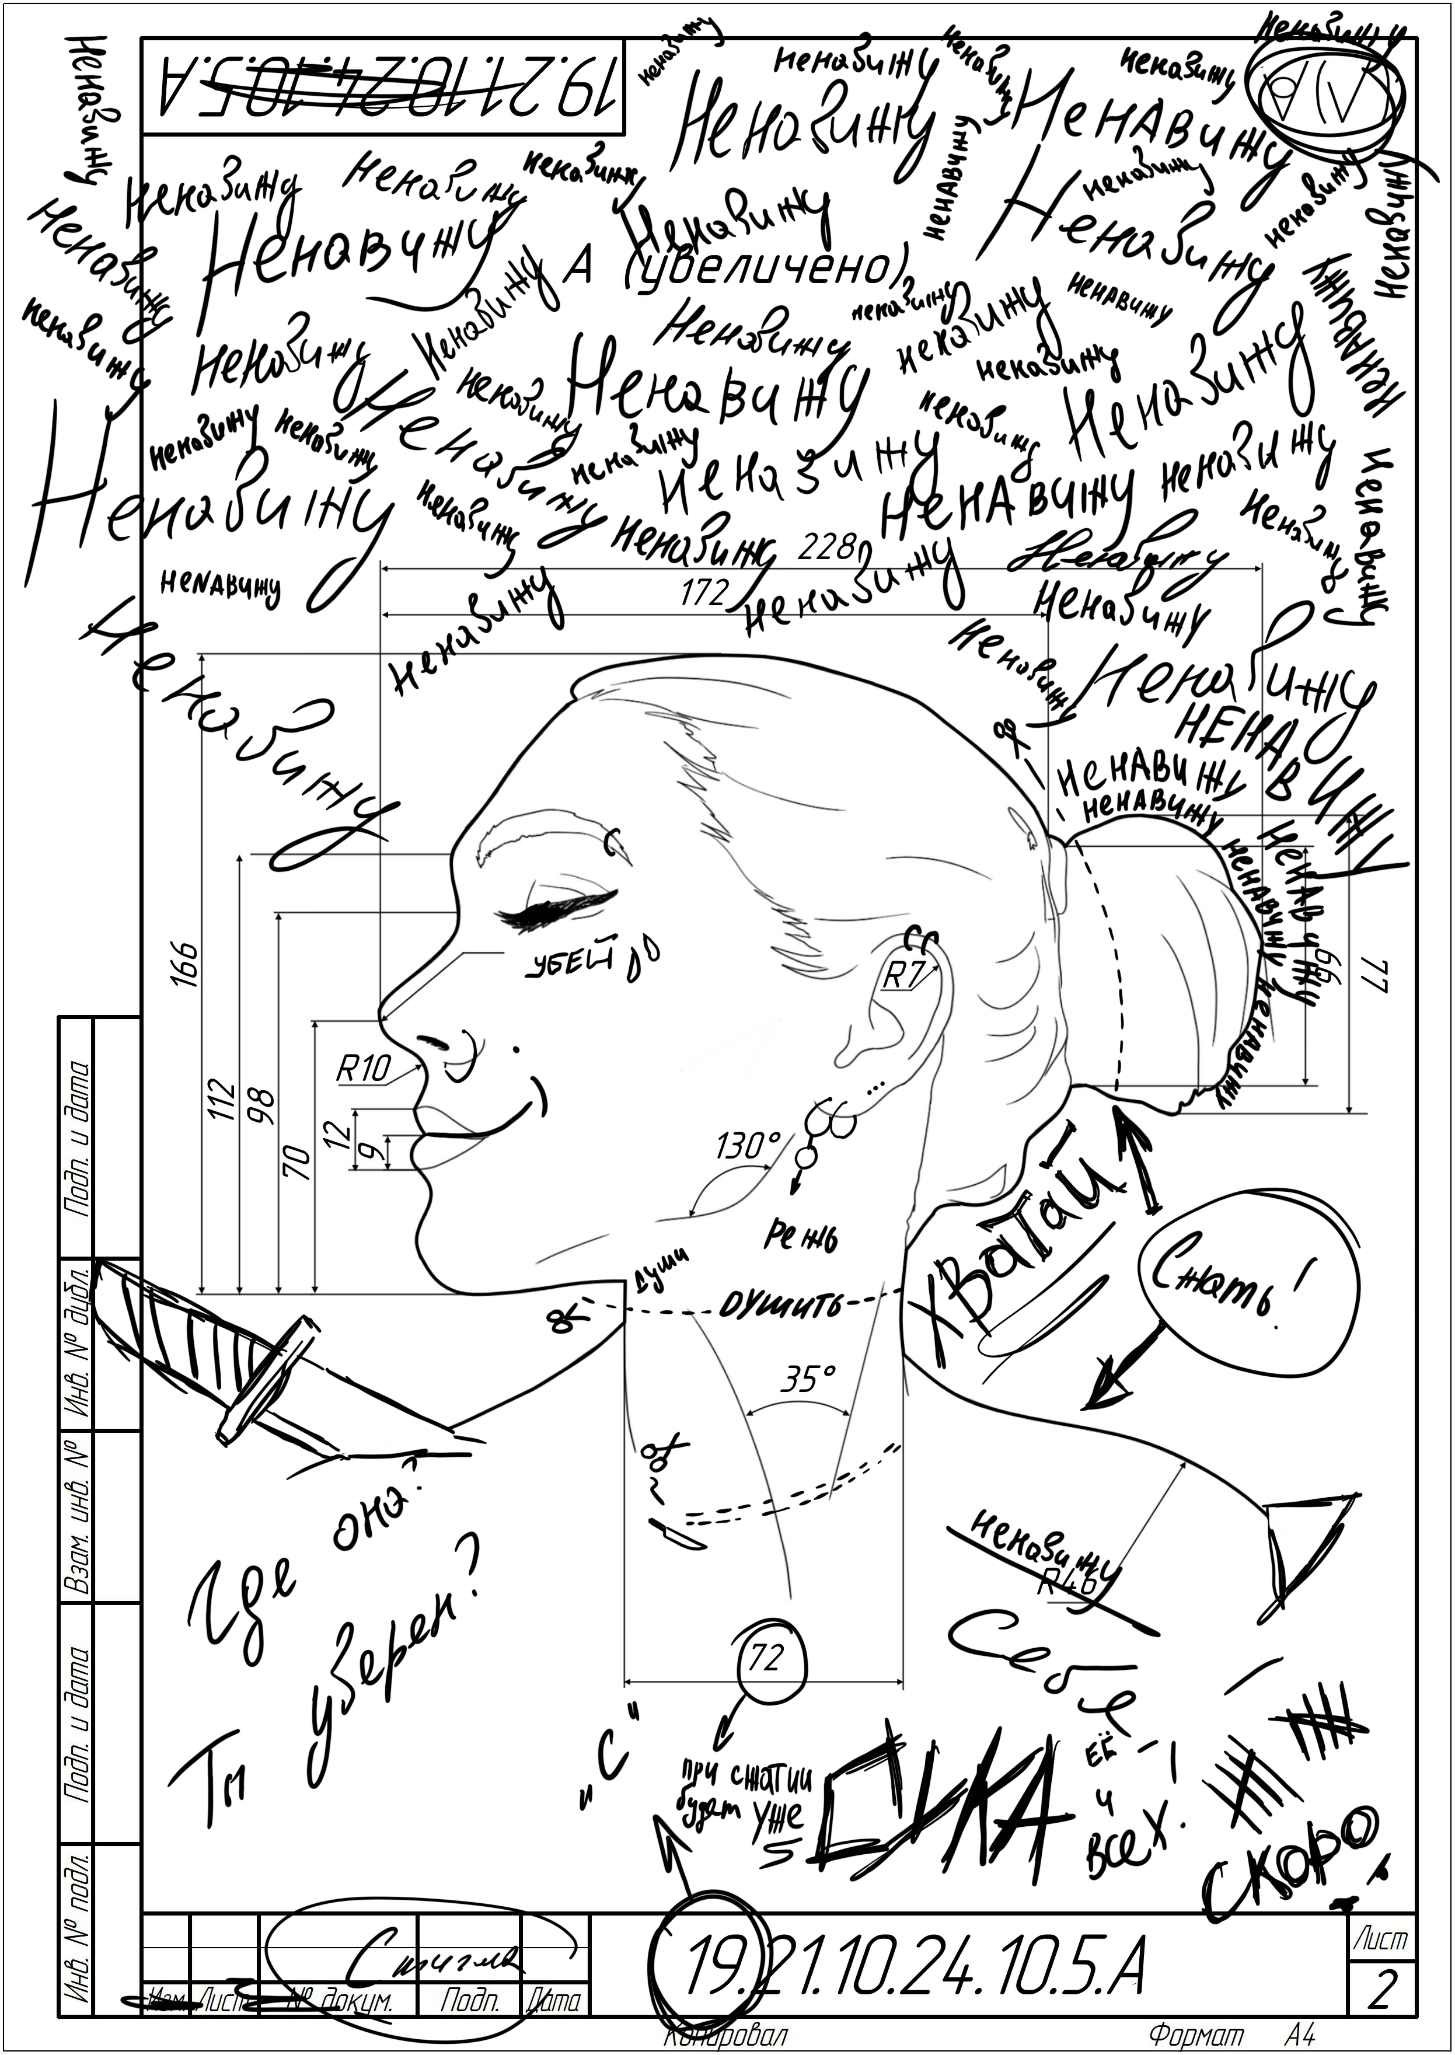 19.21.10.24.10.5.А
ненавижу
ненавижу
ненавижу
ненавижу
ненавижу
Ненавижу
Ненавижу
ненавижу
ненавижу
ненавижу
ненавижу
ненавижу
ненавижу
ненавижу
ненавижу
Ненавижу
Ненавижу
Ненавижу
Ненавижу
ненавижу
А (увеличено)
Ненавижу
ненавижу
Ненавижу
ненавижу
ненавижу
ненавижу
Ненавижу
ненавижу
Ненавижу
ненавижу
Ненавижу
Ненавижу
ненавижу
ненавижу
ненавижу
Ненавижу
ненавижу
ненавижу
Ненавижу
Ненавижу
ненавижу
ненавижу
ненавижу
Ненавижу
ненавижу
ненавижу
ненавижу
228
172
ненавижу
ненавижу
Ненавижу
Ненавижу
ненавижу
Ненавижу
ненавижу
Ненавижу
НЕНАВИЖУ
НЕНАВИЖУ
ненавижу
ненавижу
ненавижу
ненавижу
166
112
98
70
12
9
R10
R7
66
77
УБЕЙ
130°
РЕЖЬ
души
ДУШИТЬ
ХВАТАЙ
Сжать!
35°
Где она?
Ты уверен?
ненавижу
R46
Себя
ЕЁ
и
ВСЕХ.
72
"С"
при сжатии
будет УЖЕ
СКОРО
Подп. и дата
Инв. № дубл.
Взам. инв. №
Подп. и дата
Инв. № подл.
Стигма
Изм.
Лист
№ докум.
Подп.
Дата
19.21.10.24.10.5.А
Лист
2
Копировал
Формат А4